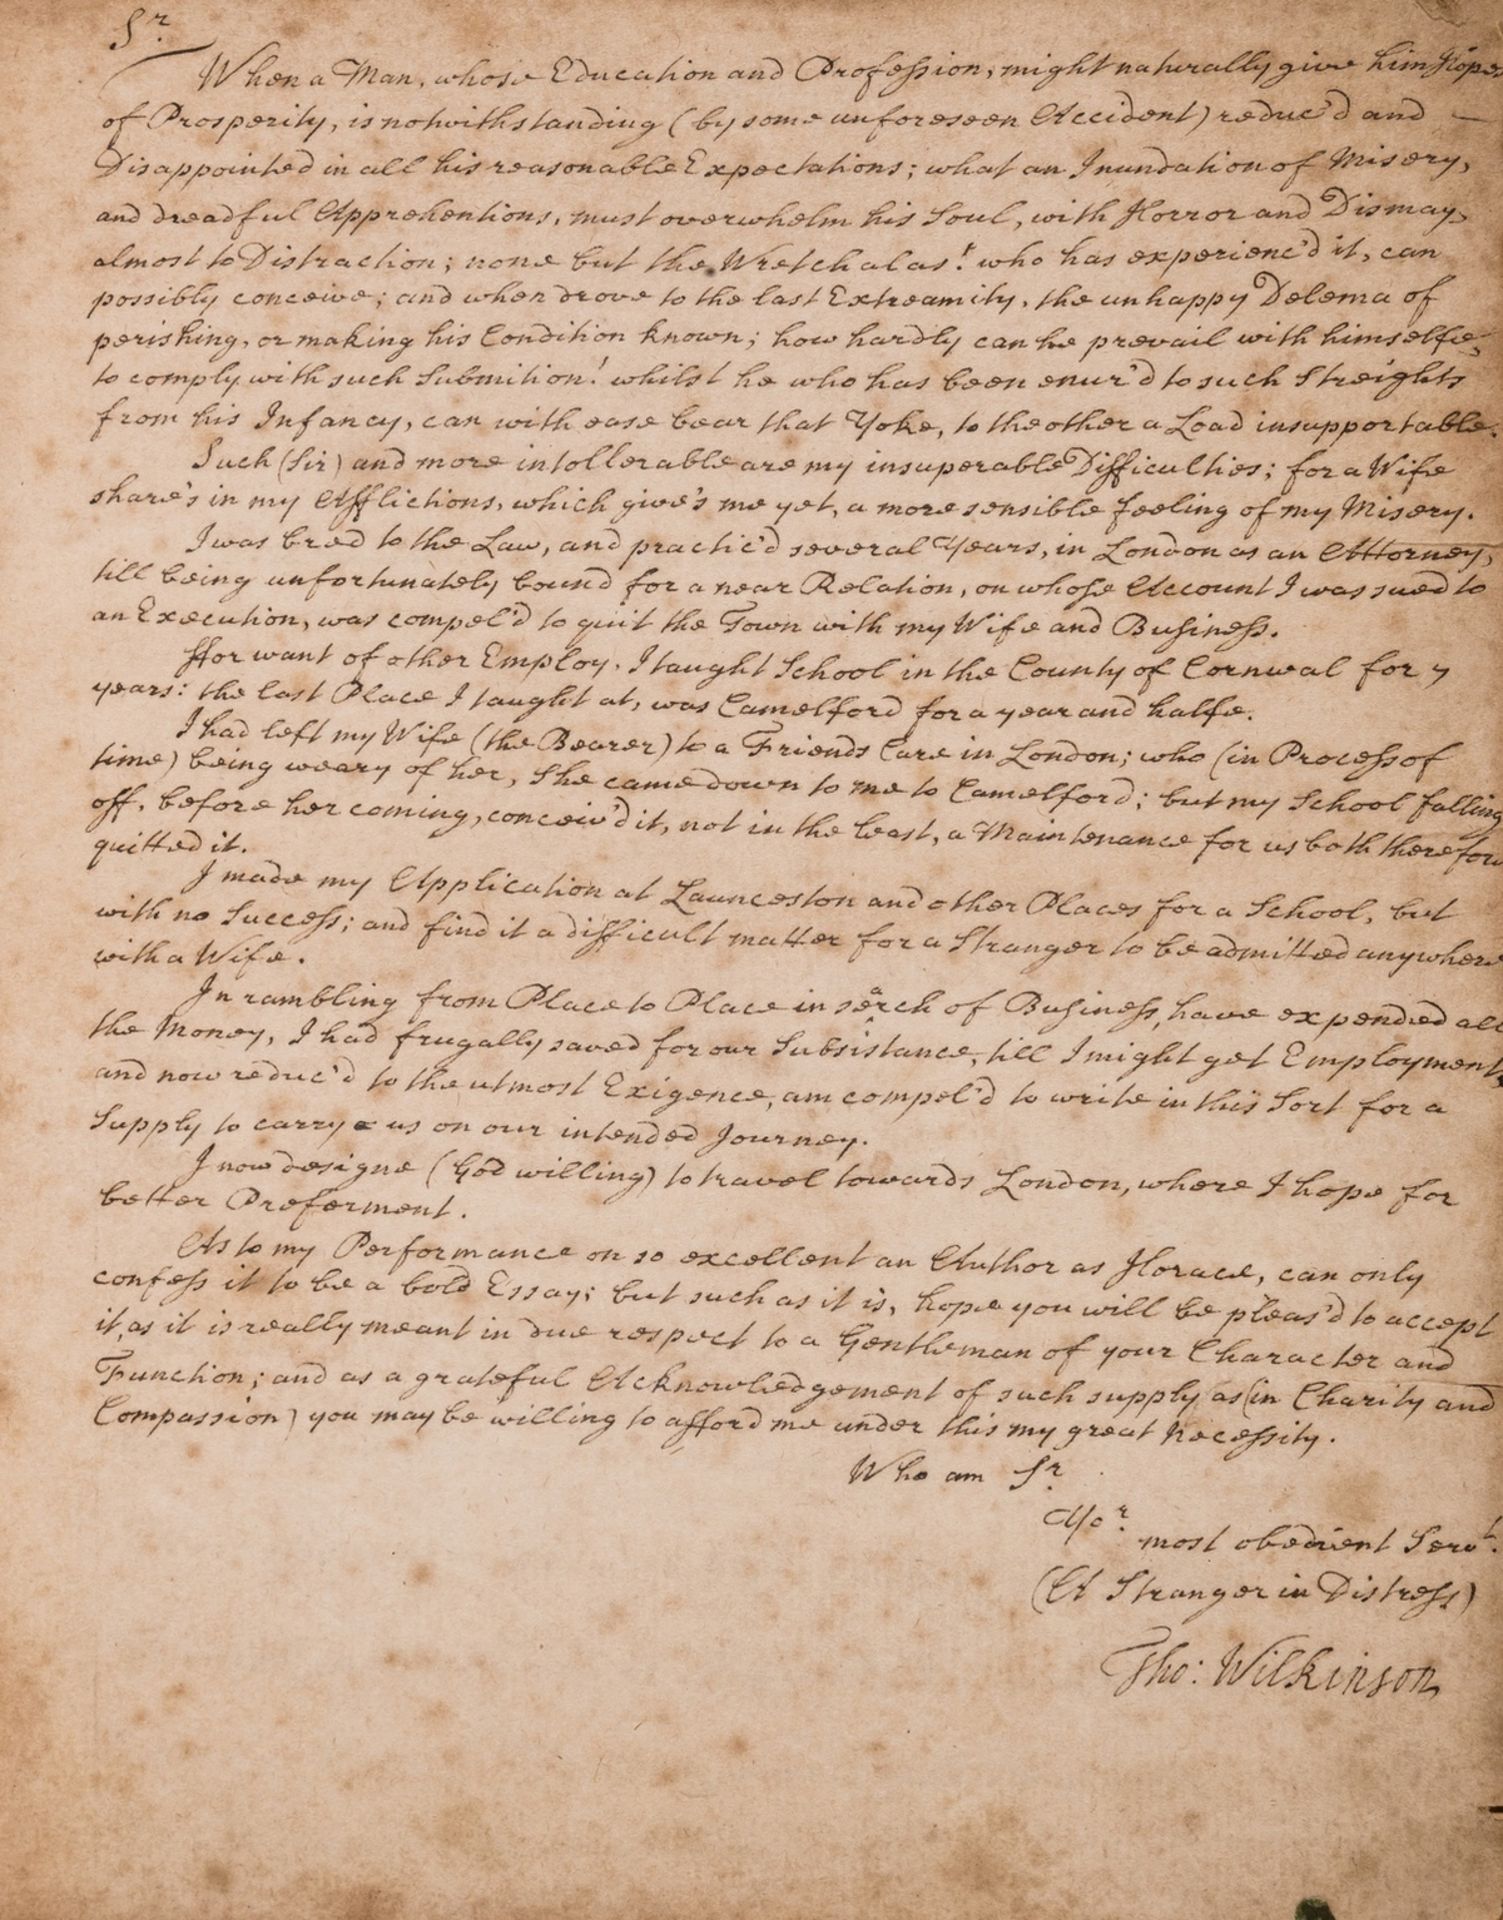 Sr.
When a Man, whose Education and Profession, might naturally give him Hopes
of Prosperity, is notwithstanding (by some unforeseen Accident) reduc'd and —
Disappointed in all his reasonable Expectations; what an Inundation of Misery,
and dreadful Apprehentions, must overwhelm his Soul, with Horror and Dismay,
almost to Distraction; none but the Wretch alas! who has experienc'd it, can
possibly conceive; and when drove to the last Extreamity, the unhappy Delema of
perishing, or making his Condition known; how hardly can he prevail with himselfe,
to comply with such Submition! whilst he who has been enur'd to such Streights
from his Infancy, can with ease bear that Yoke, to the other a Load insupportable.
Such (Sir) and more intollerable are my insuperable Difficulties; for a Wife
share's in my Afflictions, which give's me yet, a more sensible feeling of my Misery.
I was bred to the Law, and practic'd several Years, in London as an Attorney,
till being unfortunately bound for a near Relation, on whose Account I was sued to
an Execution, was compel'd to quit the Town with my Wife and Business.
ffor want of other Employ, I taught School in the County of Cornwal for 7
years: the last Place I taught at, was Camelford for a year and halfe.
I had left my Wife (the Bearer) to a Friends Care in London; who (in Process of
time) being weary of her, She came down to me to Camelford; but my School falling
off, before her coming, conceiv'd it, not in the least, a Maintenance for us both therefore
quitted it.
I made my Application at Launceston and other Places for a School, but
with no Success; and find it a difficult matter for a Stranger to be admitted anywhere
with a Wife.
In rambling from Place to Place in search of Business, have expended all
the Money, I had frugally saved for our Subsistance, till I might get Employment,
and now reduc'd to the utmost Exigence, am compel'd to write in this Sort for a
Supply to carry us on our intended Journey.
I now designe (God willing) to travel towards London, where I hope for
better Preferment.
As to my Performance on so excellent an Author as Horace, can only
confess it to be a bold Essay; but such as it is, hope you will be pleas'd to accept
it, as it is really meant in due respect to a Gentleman of your Character and
Function; and as a grateful Acknowledgement of such supply as (in Charity and
Compassion) you may be willing to afford me under this my great Necessity.
Who am Sr.
Yor. most obedient Servt.
(A Stranger in Distress)
Tho: Wilkinson